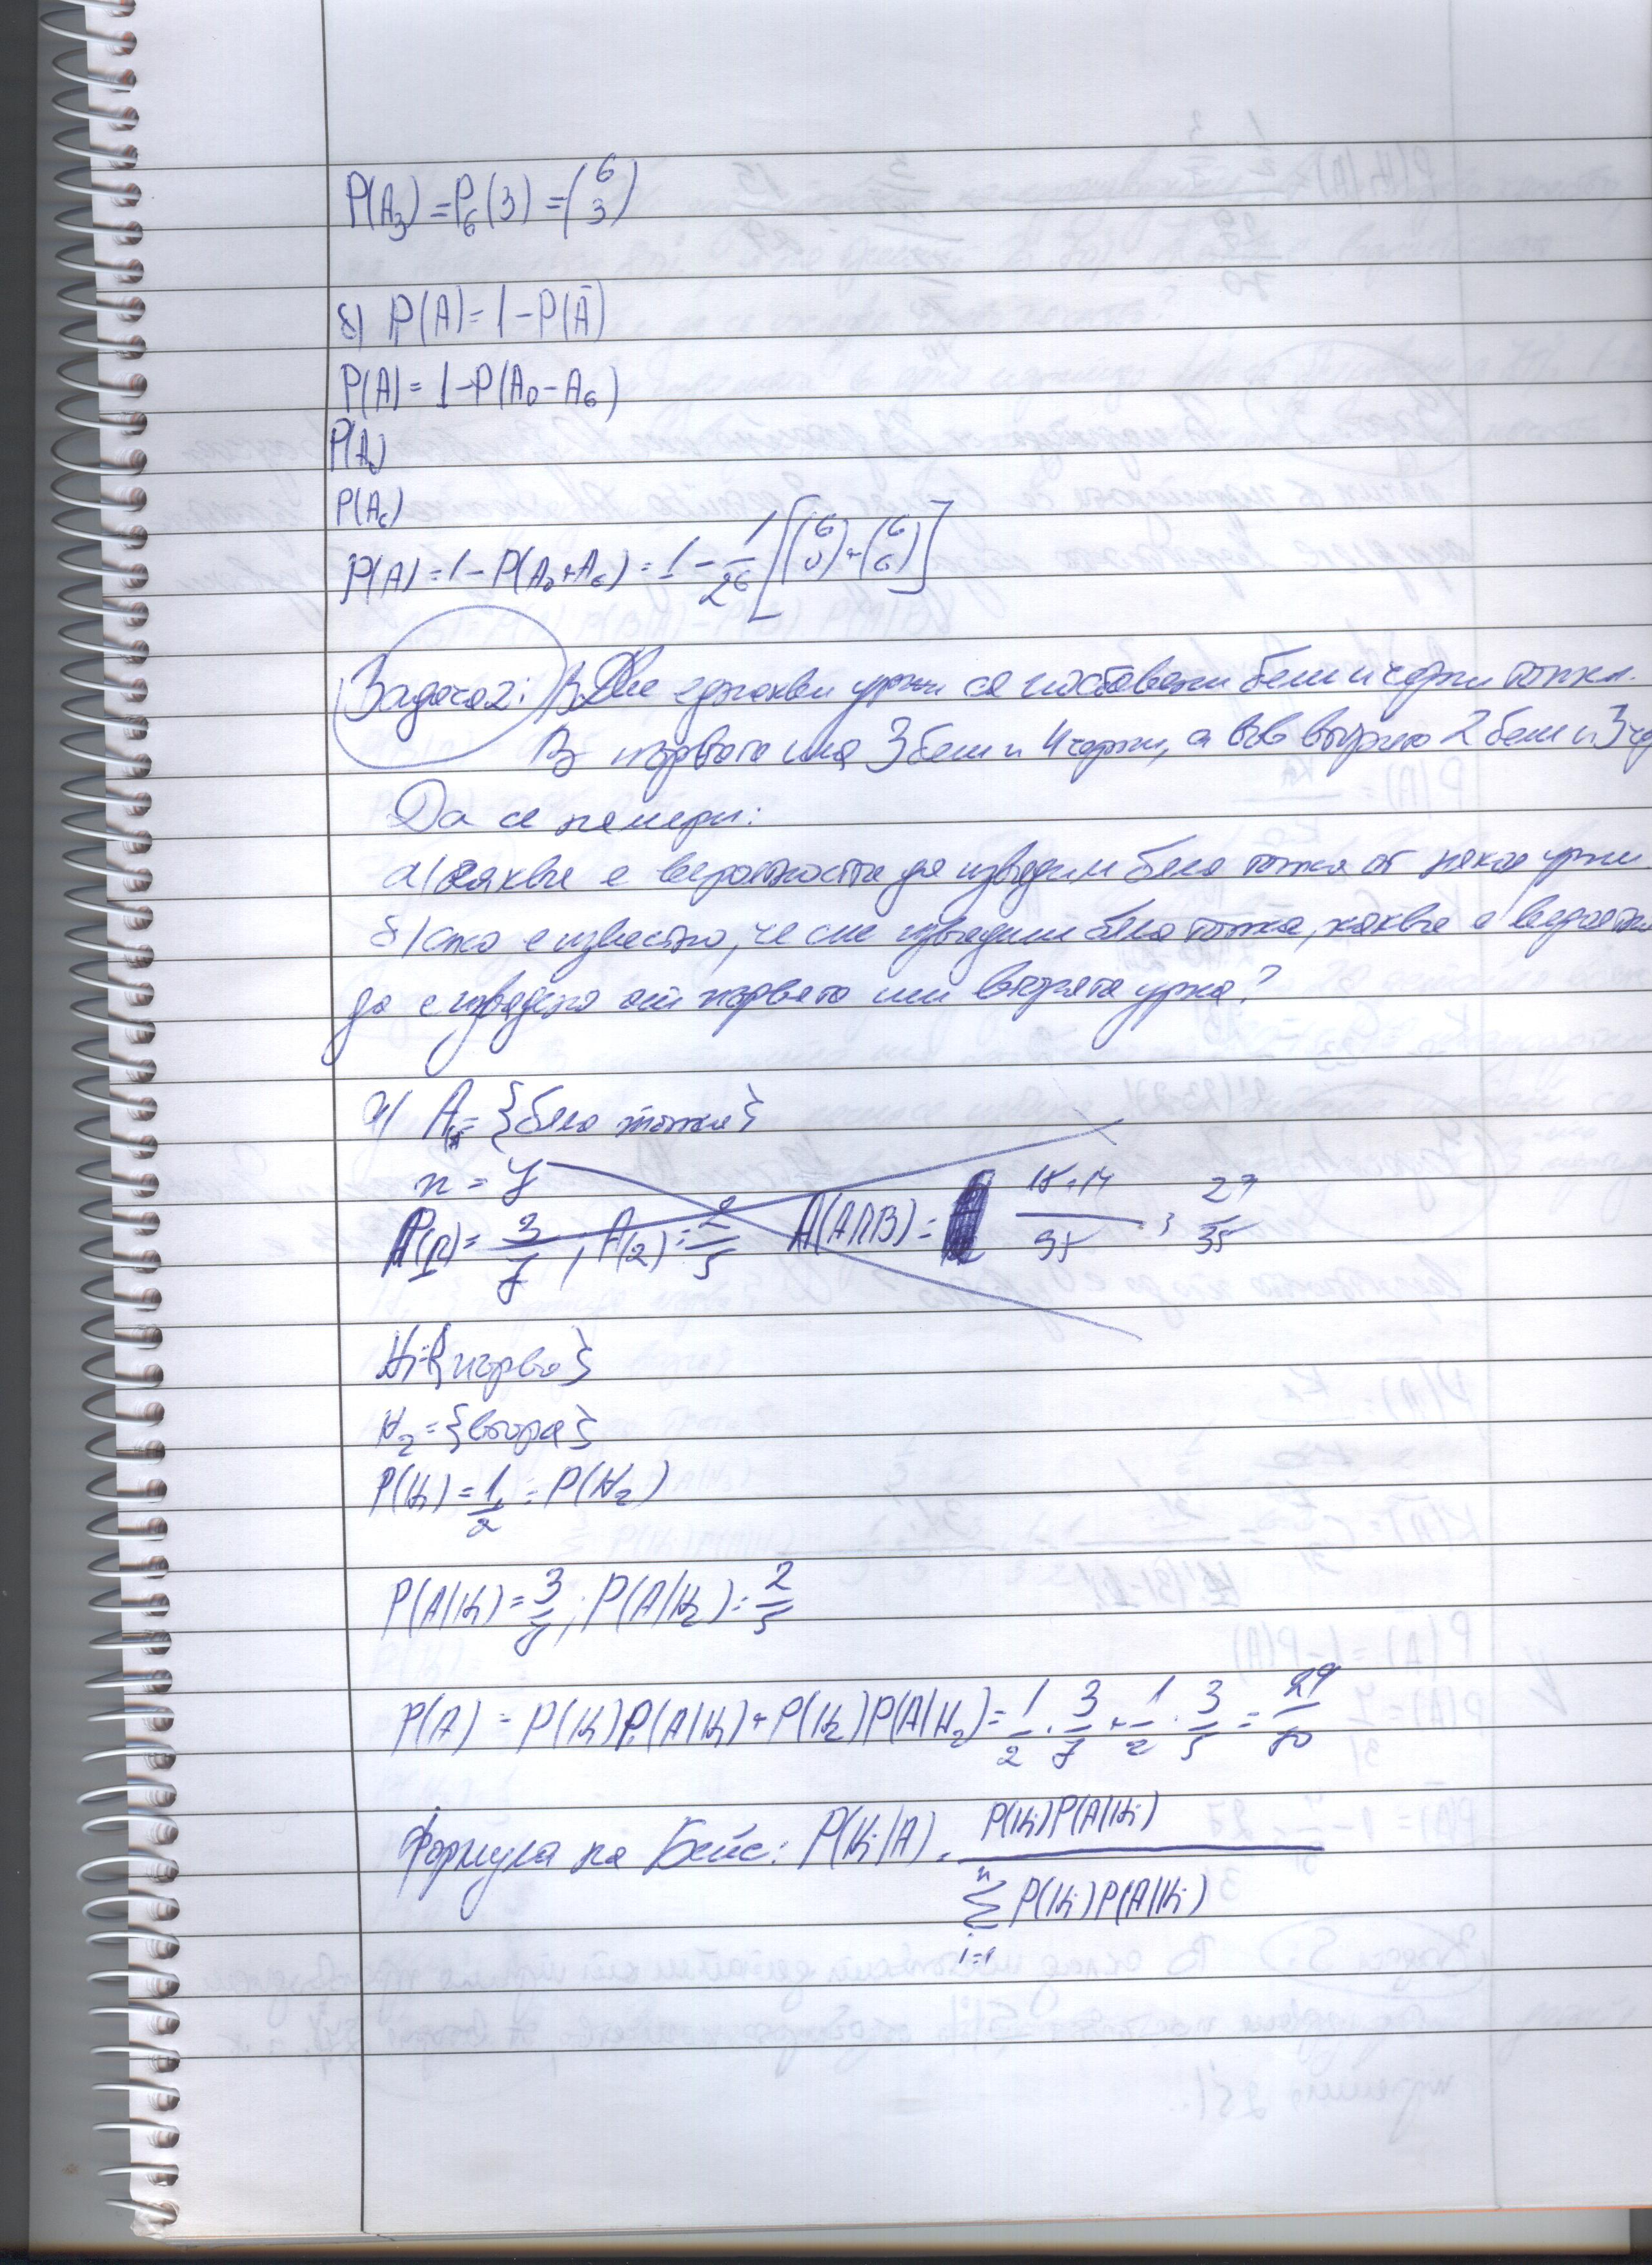 P(A₃) = P₆(3) = (6 3)
б) P(A) = 1 - P(Ā)
P(A) = 1 - P(A₀ - A₆)
P(A₀)
P(A₆)
P(A) = 1 - P(A₀ + A₆) = 1 - 1/2⁶ [(6 0) + (6 6)]
Задача 2: В две еднакви урни са поставени бели и черни топки.
В първата има 3 бели и 4 черни, а във втората 2 бели и 3 че
Да се намери:
а) каква е вероятността да извадим бяла топка от някоя урна.
б) ако е известно, че сме извадили бяла топка, каква е вероятно
да е извадена от първата или втората урна?
а) A = {бяла топка}
n = 7
A(1) = 3/7, A(2) = 2/5 A(A∩B) = 15+14/35 = 29/35
H₁ = {първа}
H₂ = {втора}
P(H₁) = 1/2 = P(H₂)
P(A|H₁) = 3/7; P(A|H₂) = 2/5
P(A) = P(H₁)P(A|H₁) + P(H₂)P(A|H₂) = 1/2 · 3/7 + 1/2 · 3/5 = 29/70
Формула на Бейс: P(Hᵢ|A) = P(Hᵢ)P(A|Hᵢ)
n
∑ P(Hᵢ)P(A|Hᵢ)
i=1